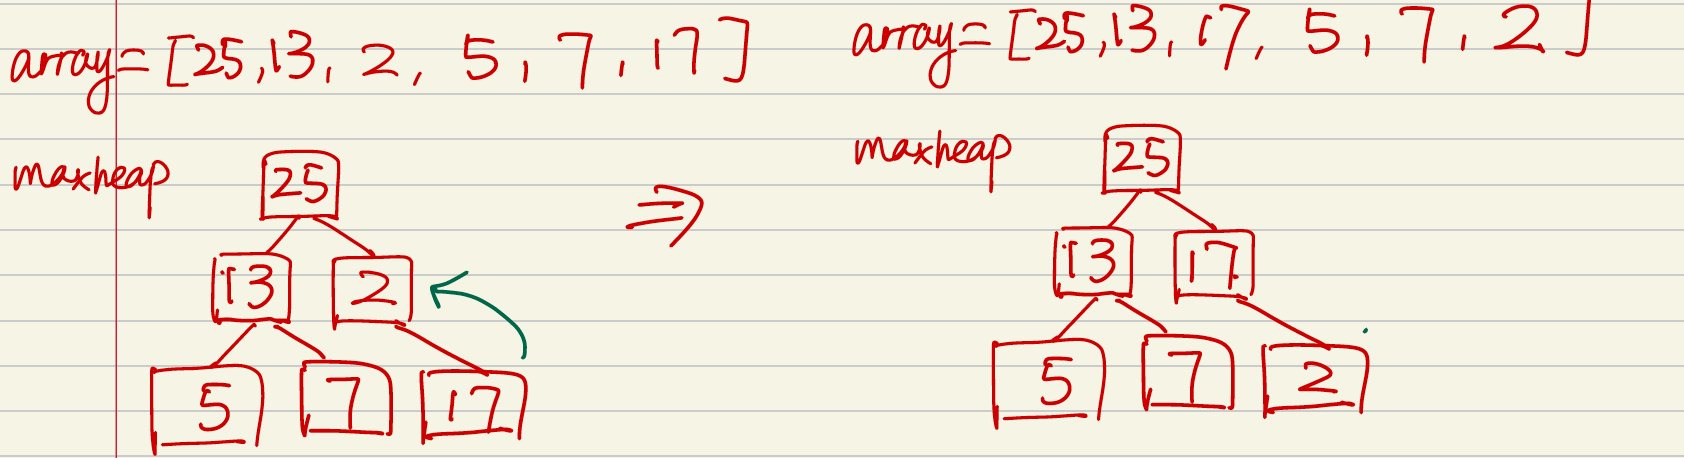 array = [25, 13, 2, 5, 7, 17]
maxheap
25
13 2
5 7 17
⇒
array = [25, 13, 17, 5, 7, 2]
maxheap
25
13 17
5 7 2